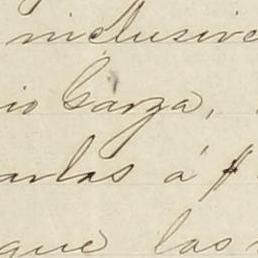 inclusive
io Garza,
arlas á
que las